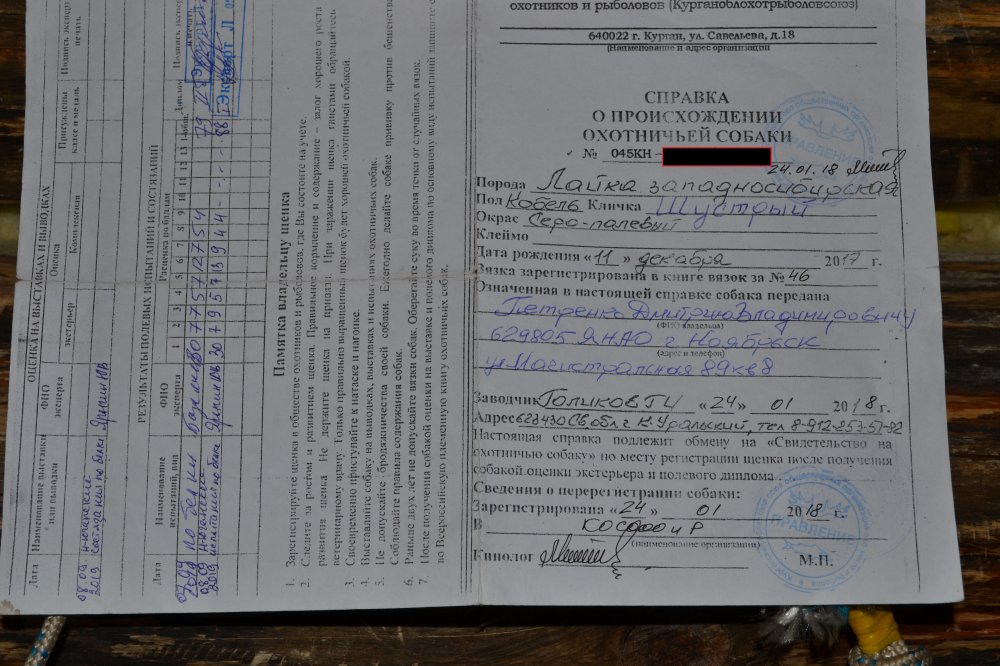 охотников и рыболовов (Курганоблохотрыболовсоюз)
640022 г. Курган, ул. Савельева, д.18
(Наименование и адрес организации)
СПРАВКА
О ПРОИСХОЖДЕНИИ
ОХОТНИЧЬЕЙ СОБАКИ
№ 045КН -
24.01.18
Порода Лайка западносибирская
Пол Кобель Кличка Шустрый
Окрас Серо-палевый
Клеймо
Дата рождения «11» декабря 2017 г.
Вязка зарегистрирована в книге вязок за № 46
Означенная в настоящей справке собака передана
Петренко Дмитрию Владимировичу
(ФИО владельца)
629805 ЯНАО г Ноябрьск
(адрес и телефон)
ул Магистральная 89 кв 8
Заводчик Голиков Г Ч «24» 01 2018 г.
Адрес 623430 Св.обл г К-Уральский, тел 8-912-253-57-82
Настоящая справка подлежит обмену на «Свидетельство на
охотничью собаку» по месту регистрации щенка после получения
собакой оценки экстерьера и полевого диплома
Сведения о перерегистрации собаки:
Зарегистрирована «24» 01 2018 г.
В КОСООО и Р
(наименование организации)
Кинолог
М.П.
ПРАВЛЕНИЕ
ПРАВЛЕНИЕ
ОЦЕНКА НА ВЫСТАВКАХ И ВЫВОДКАХ
Дата
Наименование выставки
или выводки
ФИО
эксперта
Оценка
экстерьер
Комплексная
Присуждены
класс и медаль
Подпись эксперта
и печать
08.09.
2019
состязания по белке
РЕЗУЛЬТАТЫ ПОЛЕВЫХ ИСПЫТАНИЙ И СОСТЯЗАНИЙ
Дата
Наименование
испытаний, вид
ФИО
эксперта
Расценка по баллам
1 2 3 4 5 6 7 8 9 10 11 12 13 1-общ.
Диплом
по белке
79
08.09
2019
испытания по белке
88
Эксперт
Памятка владельцу щенка
1. Зарегистрируйте щенка в обществе охотников и рыболовов, где Вы состоите на учете.
2. Следите за ростом и развитием щенка. Правильное кормление и содержание – залог хорошего роста и
развития щенка. Не держите щенка на привязи. При заражении щенка глистами обращайтесь к
ветеринарному врачу. Только правильно выращенный щенок будет хорошей охотничьей собакой.
3. Своевременно приступайте к натаске и нагонке.
4. Выставляйте собаку на выводках, выставках и испытаниях охотничьих собак.
5. Не допускайте бродяжничества своей собаки. Ежегодно делайте собаке прививку против бешенства.
Соблюдайте правила содержания собак.
6. Раньше двух лет не допускайте вязки собак. Оберегайте суку во время течки от случайных вязок.
7. После получения собакой оценки на выставке и полевого диплома по основному виду испытаний запишите
во Всероссийскую племенную книгу охотничьих собак.